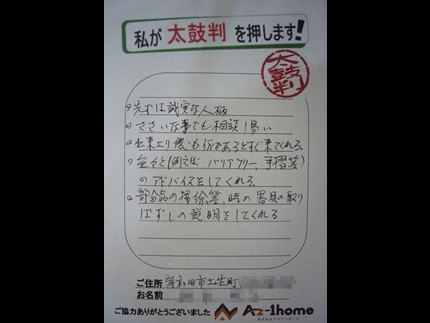 私が 太鼓判 を押します!
太鼓判
先ずは誠実な人柄
ささいな事でも相談し易い
出来上り後も何かあるとすぐ来てくれる
色々と(例えば バリアフリー、手摺等)
のアドバイスをしてくれる
部分品の掃除等、時の器具の取り
はずしの説明をしてくれる
ご住所 岸和田市土生町
お名前
ご協力ありがとうございました
Az-1home